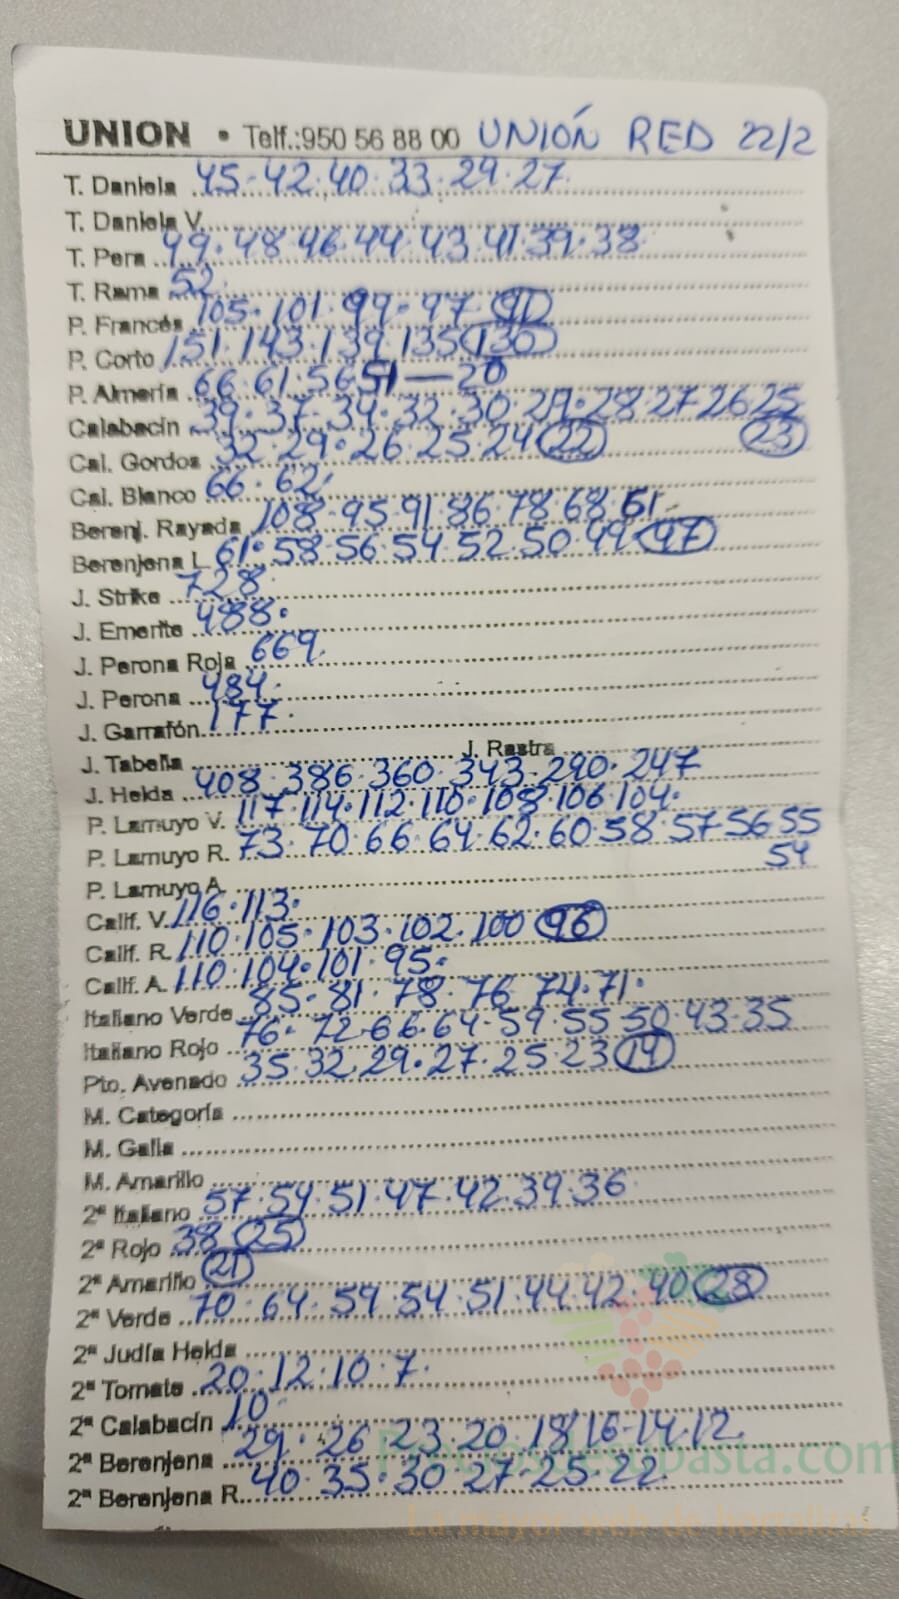 UNION • Telf.:950 56 88 00 UNIÓN RED 22/2
T. Daniela 45·42·40·33·29·27
T. Daniela V.
T. Pera 49·48·46·44·43·41·39·38
T. Rama 52
P. Francés 105·101·99·97·91
P. Corto 151·143·139·135 130
P. Almería 66·61·56 51—20
Calabacín 39·37·34·32·30·29·28·27 26 25
Cal. Gordos 32·29·26·25·24 22 23
Cal. Blanco 66·62
Berenj. Rayada 108·95·91·86·78·68 61
Berenjena L 61·58·56·54·52·50·49·47
J. Strike 728
J. Emerite 488
J. Perona Roja 669
J. Perona 484
J. Garrafón 177
J. Tabella J. Rastra
J. Helda 408·386·360·343·290·247
P. Lamuyo V. 117·114·112·110·108·106·104
P. Lamuyo R. 73·70·66·64·62·60·58·57·56 55
54
P. Lamuyo A.
Calif. V. 116·113
Calif. R. 110·105·103·102·100 96
Calif. A. 110·104·101·95
Italiano Verde 85·81·78·76·74·71
Italiano Rojo 76·72·66·64·59·55·50·43·35
Pto. Avenado 35·32·29·27·25·23 19
M. Categoría
M. Galia
M. Amarillo
2ª Italiano 57·54·51·47·42·39·36
2ª Rojo 38 25
2ª Amarillo 21
2ª Verde 70·64·59·54·51·44·42·40 28
2ª Judía Helda
2ª Tomate 20·12·10·7
2ª Calabacín 10
2ª Berenjena 29·26·23·20·18·16·14·12
2ª Berenjena R. 40·35·30·27·25·22
Preciosdesubasta.com
La mayor web de hortalizas